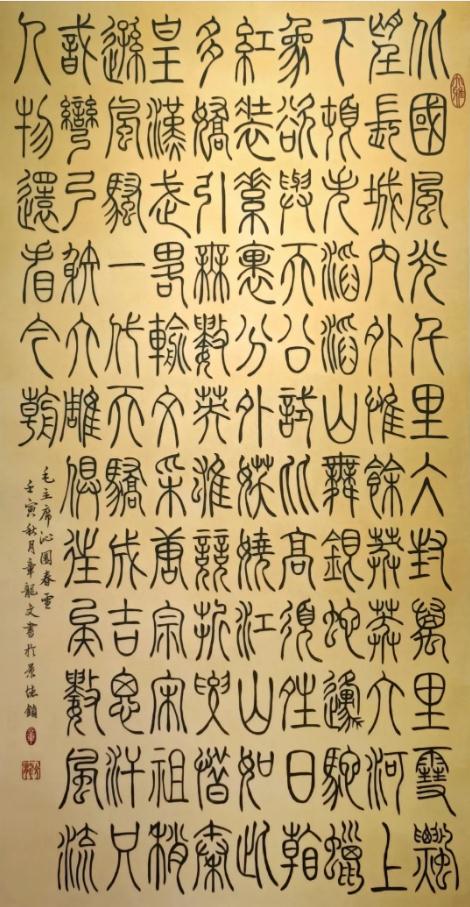 北國風光千里冰封萬里雪飄
望長城內外惟餘莽莽大河上
下頓失滔滔山舞銀蛇邍馳蠟
象欲與天公試比高須姓日看
紅裝素裹分外妖嬈江山如此
多嬌引無數英雄競折要惜秦
皇漢武略輸文采唐宗宋祖稍
遜風騷一代天驕成吉思汗只
識彎弓射大雕俱往矣數風流
人物還看今朝
毛主席沁園春雪
壬寅秋月章龍文書於景德鎮